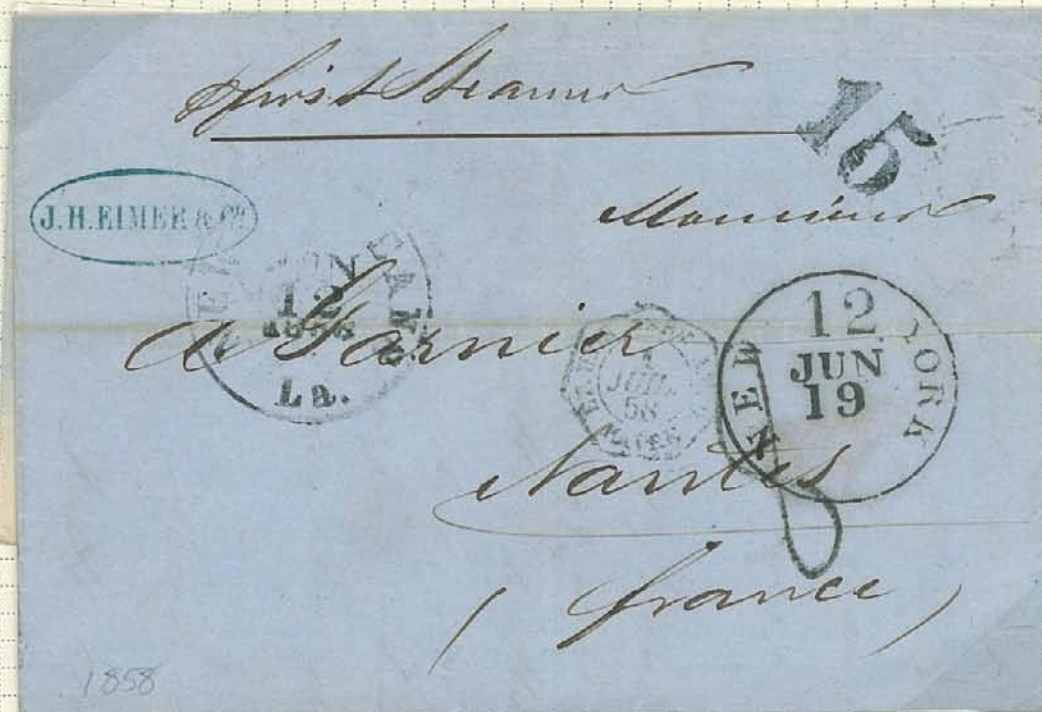 p first Steamer
15
J. H. EIMER & Co
Monsieur
JUN
12
1858
La.
A Garnier
1
JUIL
58
12
NEW YORK
JUN
19
Nantes
8
( france )
1858